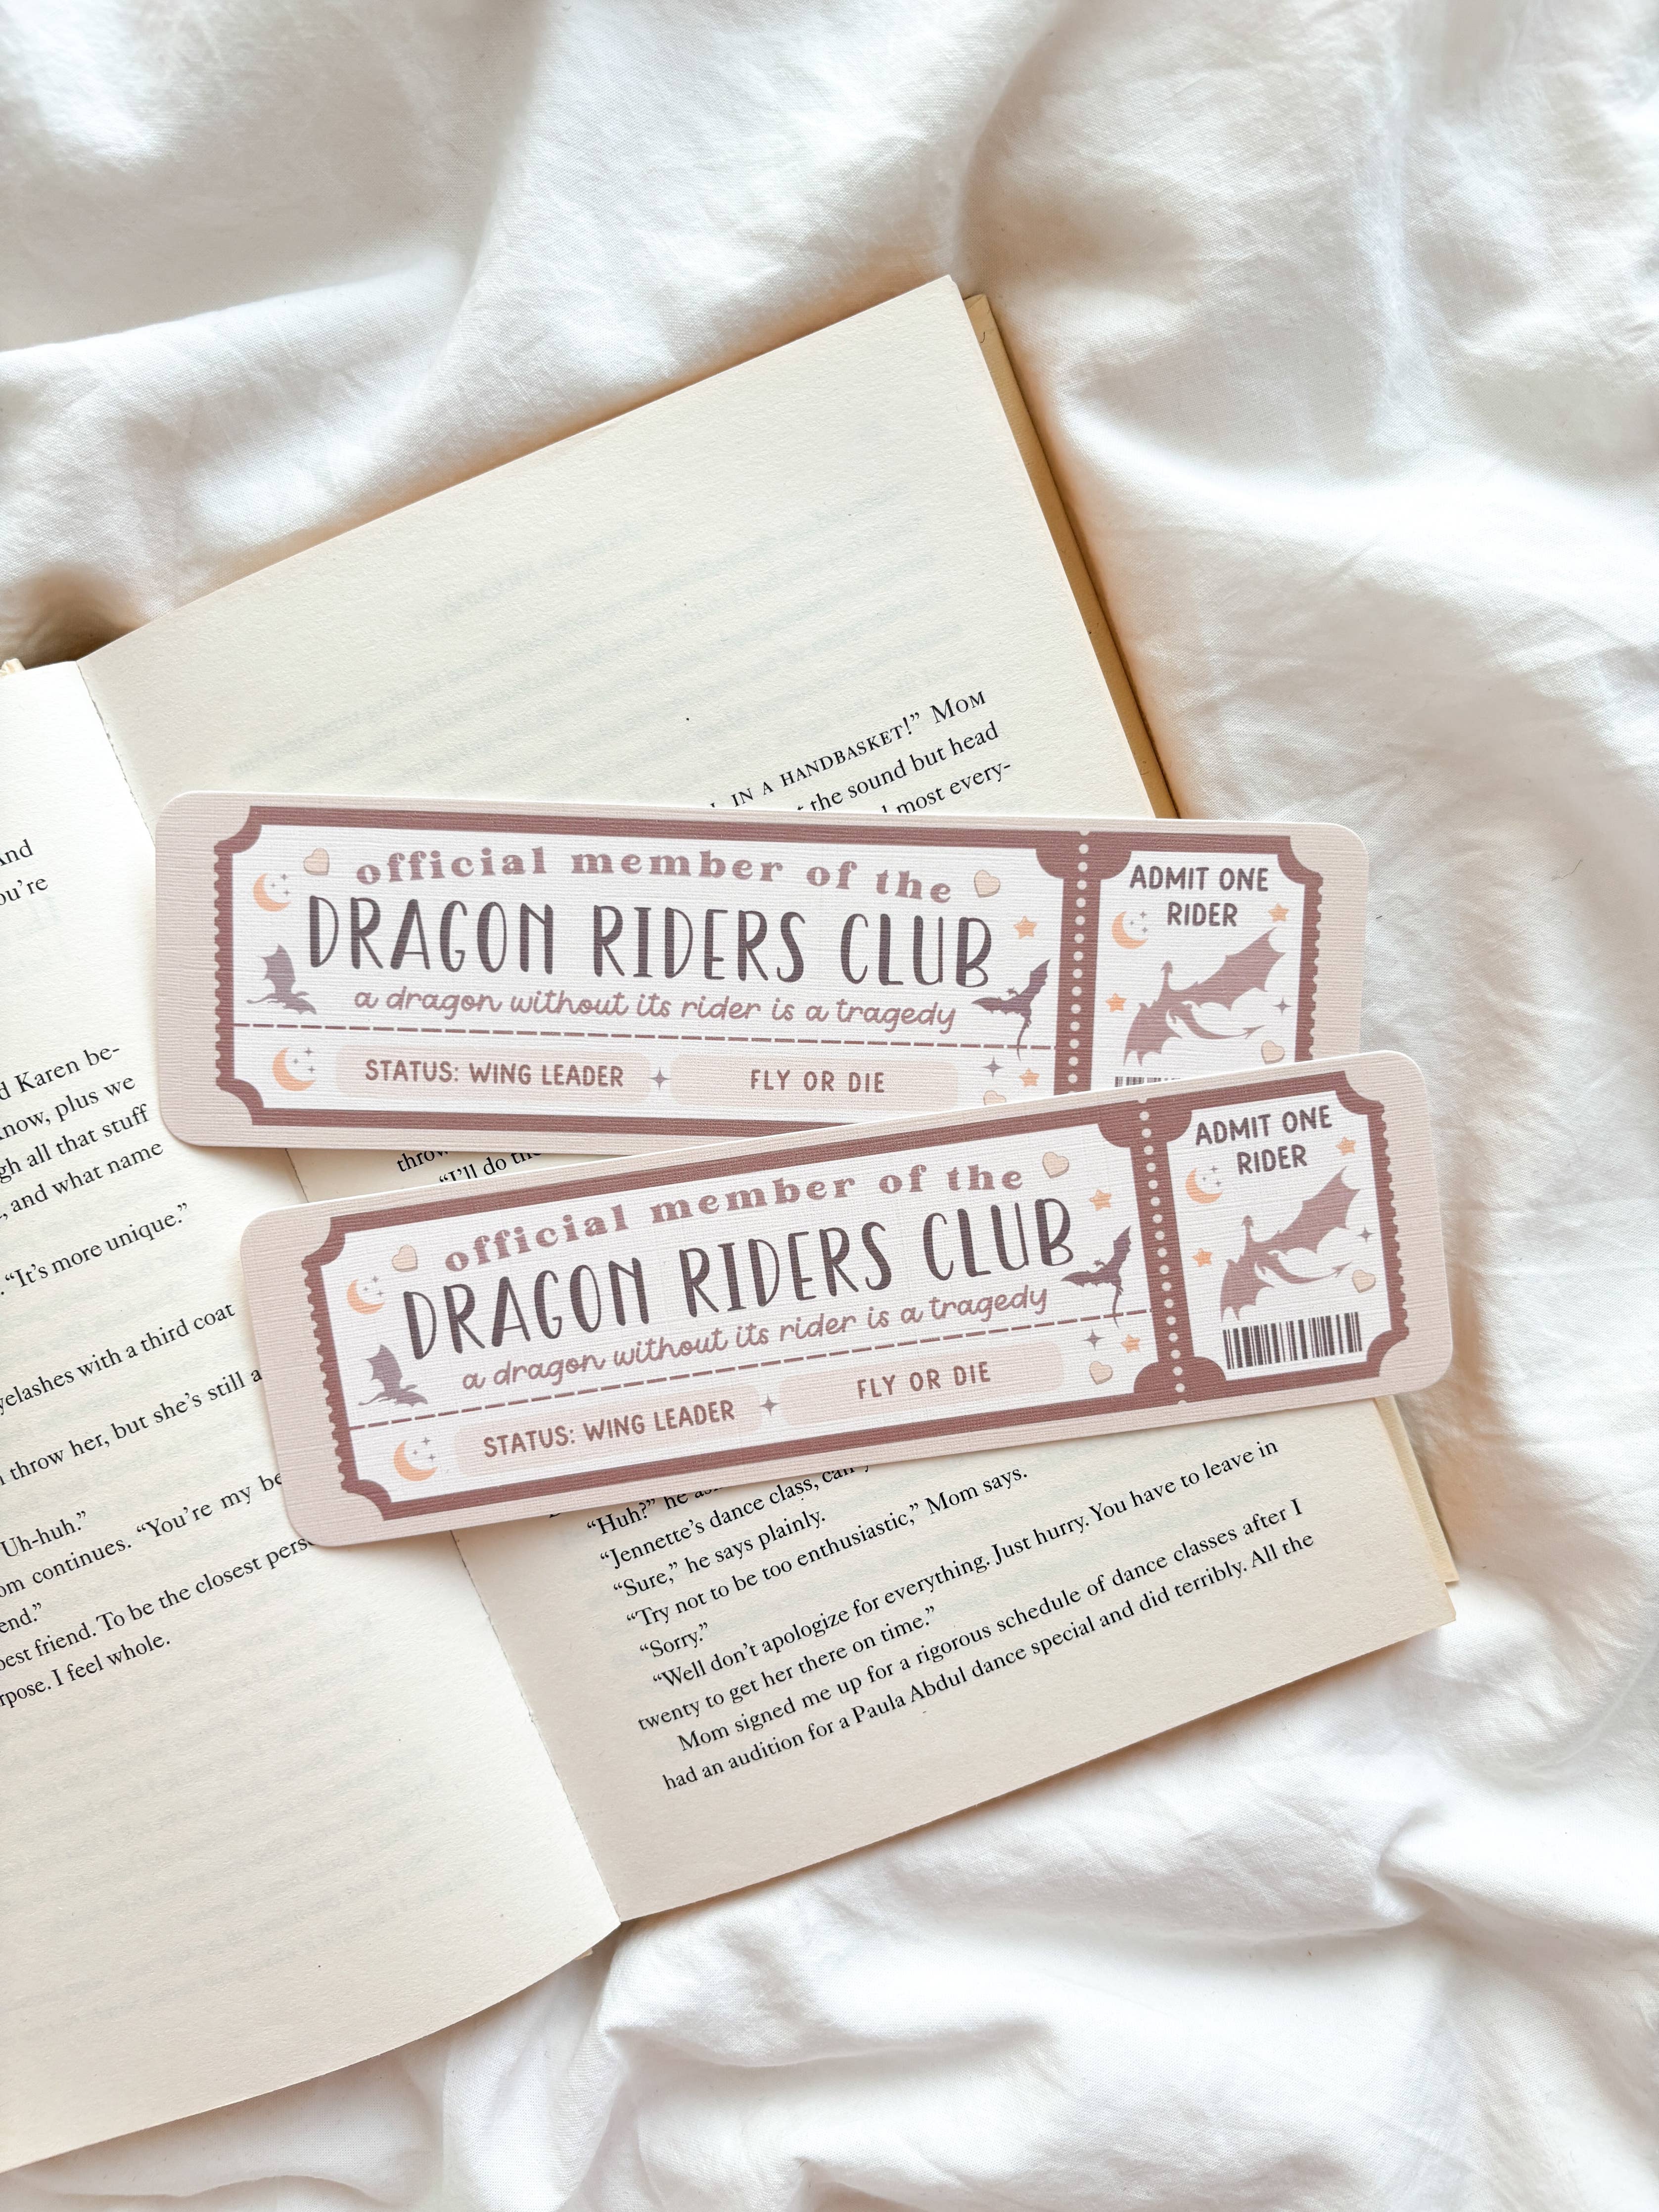 And
ou're
d Karen be-
now, plus we
gh all that stuff
, and what name
"It's more unique."
yelashes with a third coat
throw her, but she's still a
Uh-huh."
om continues. "You're my be
end."
best friend. To be the closest pers
rpose. I feel whole.
IN A HANDBASKET!" MOM
the sound but head
most every-
official member of the
DRAGON RIDERS CLUB
a dragon without its rider is a tragedy
STATUS: WING LEADER
FLY OR DIE
ADMIT ONE
RIDER
throw
"I'll do the
official member of the
DRAGON RIDERS CLUB
a dragon without its rider is a tragedy
STATUS: WING LEADER
FLY OR DIE
ADMIT ONE
RIDER
"Huh?" he as
"Jennette's dance class, can y
"Sure," he says plainly.
"Try not to be too enthusiastic," Mom says.
"Sorry."
"Well don't apologize for everything. Just hurry. You have to leave in
twenty to get her there on time."
Mom signed me up for a rigorous schedule of dance classes after I
had an audition for a Paula Abdul dance special and did terribly. All the